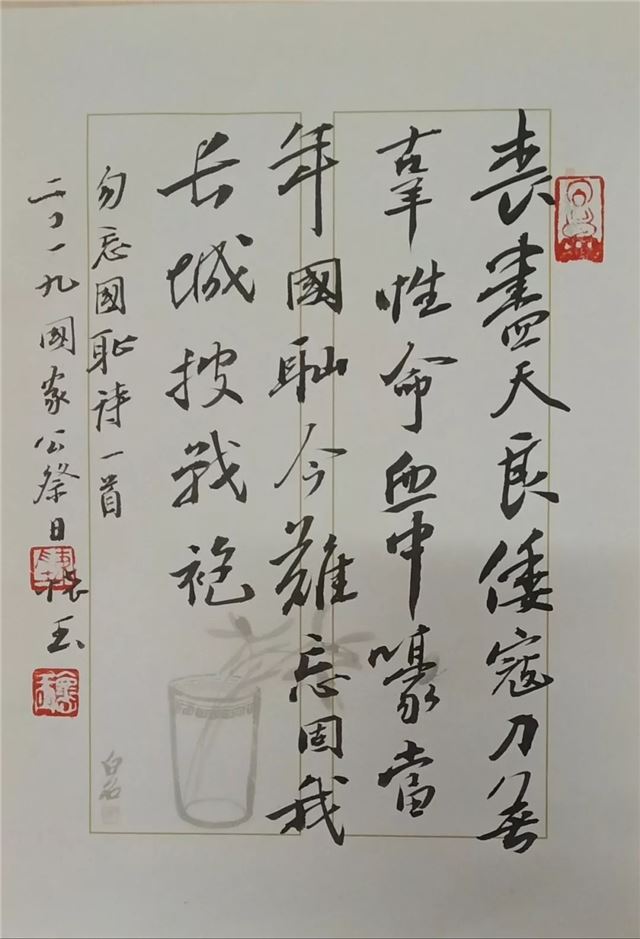 丧盡天良倭寇刀無
辜性命血中嚎當
年國耻今難忘固我
长城披戰袍
勿忘國耻诗一首
二〇一九國家公祭日 玉
白石